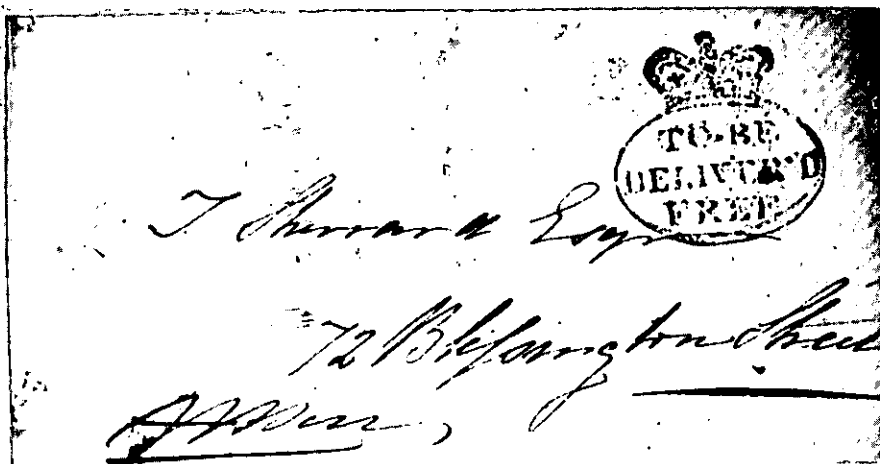 TO BE
DELIVER'D
FREE
T Sherrard Esqr
72 Blessington Street